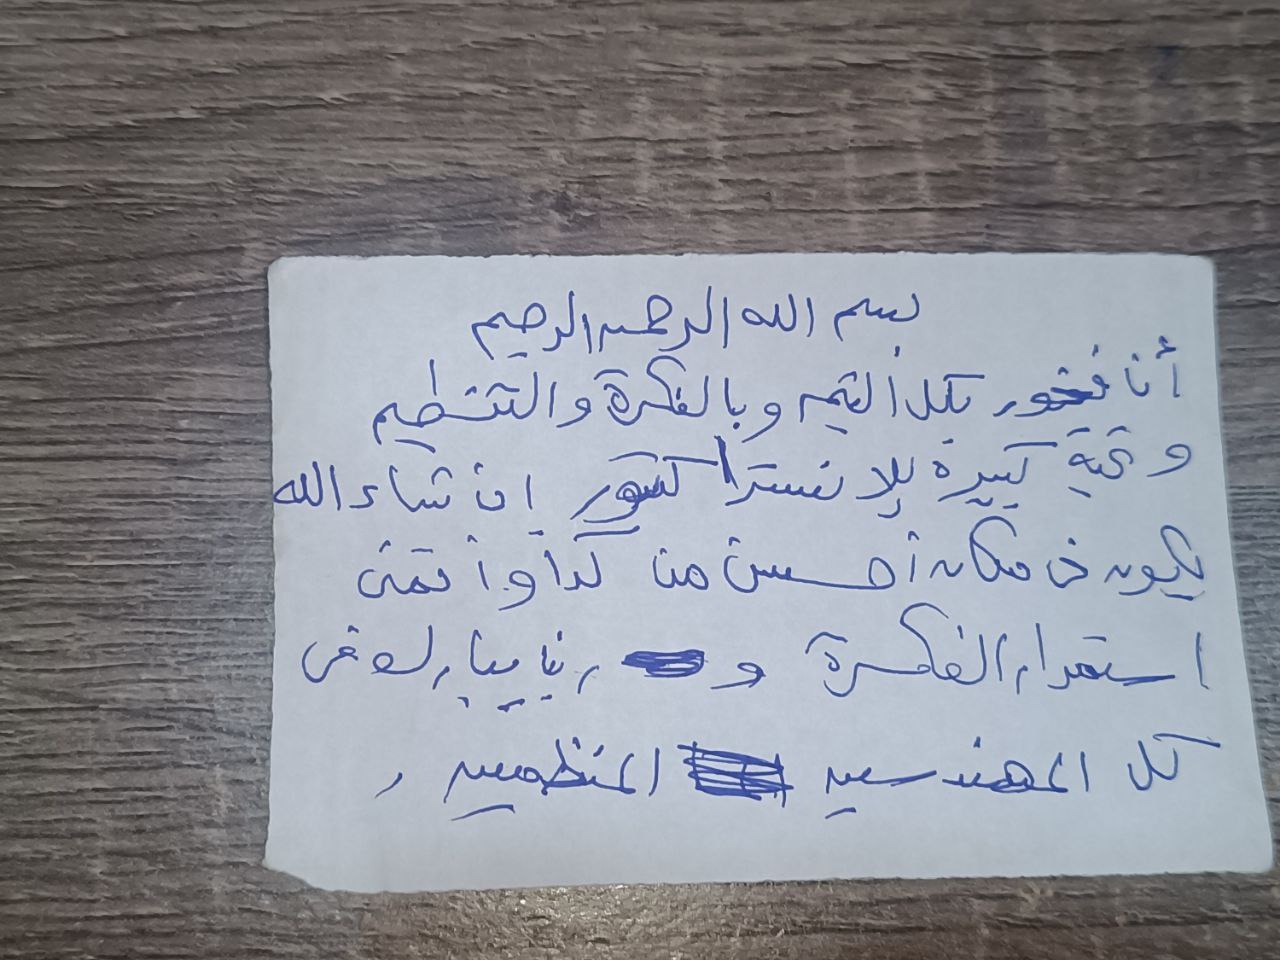 بسم الله الرحمن الرحيم
أنا فخور بكل التيم وبالفكرة والتنظيم
وتحية كبيرة للإنستراكتور إن شاء الله
يكون في مكان أحسن من كدا وأتمنى
استمرار الفكرة و ربنا يبارك في
كل المهندسين المنظمين